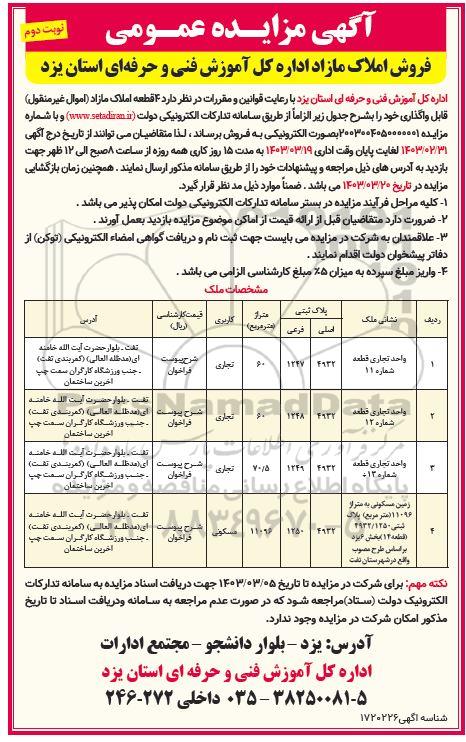 آگهی مزایده عمومی
نوبت دوم
فروش املاک مازاد اداره کل آموزش فنی و حرفه‌ای استان یزد
اداره کل آموزش فنی و حرفه ای استان یزد با رعایت قوانین و مقررات در نظر دارد ۴قطعه املاک مازاد (اموال غیرمنقول)
قابل واگذاری خود را بشرح جدول زیر الزاماً از طریق سامانه تدارکات الکترونیکی دولت (www.setadiran.ir) و با شماره
مزایده ۲۰۰۳۰۰۴۰۵۰۰۰۰۰۰۱ بصورت الکترونیکی به فروش برساند ، لذا متقاضیان می توانند از تاریخ درج آگهی
۱۴۰۳/۰۲/۳۱ لغایت پایان وقت اداری ۱۴۰۳/۰۳/۱۹ به مدت ۱۵ روز کاری همه روزه از ساعت ۸صبح الی ۱۲ ظهر جهت
بازدید به آدرس های ذیل مراجعه و پیشنهادات خود را از طریق سامانه مذکور ارسال نمایند . همچنین زمان بازگشایی
مزایده در تاریخ ۱۴۰۳/۰۳/۲۰ می باشد . ضمناً موارد ذیل مد نظر قرار گیرد.
۱- کلیه مراحل فرآیند مزایده در بستر سامانه تدارکات الکترونیکی دولت امکان پذیر می باشد .
۲- ضرورت دارد متقاضیان قبل از ارائه قیمت از اماکن موضوع مزایده بازدید بعمل آورند .
۳- علاقمندان به شرکت در مزایده می بایست جهت ثبت نام و دریافت گواهی امضاء الکترونیکی (توکن) از
دفاتر پیشخوان دولت اقدام نمایند .
۴- واریز مبلغ سپرده به میزان ۵٪ مبلغ کارشناسی الزامی می باشد .
مشخصات ملک
ردیف نشانی ملک پلاک ثبتی اصلی فرعی متراژ (مترمربع) کاربری قیمت‌کارشناسی (ریال) آدرس
۱ واحد تجاری قطعه شماره ۱۱ ۴۹۳۲ ۱۲۴۷ ۶۰ تجاری شرح‌پیوست فراخوان تفت ـ بلوارحضرت آیت الله خامنه ای(مدظله العالی) (کمربندی تفت) ـ جنب ورزشگاه کارگران سمت چپ آخرین ساختمان
۲ واحد تجاری قطعه شماره ۱۲ ۴۹۳۲ ۱۲۴۸ ۶۰ تجاری شرح پیوست فراخوان تفت ـ بلوارحضرت آیت الله خامنه ای(مدظله العالی) (کمربندی تفت) ـ جنب ورزشگاه کارگران سمت چپ آخرین ساختمان
۳ واحد تجاری قطعه شماره ۱۳ ۴۹۳۲ ۱۲۴۹ ۷۰/۵ تجاری شرح پیوست فراخوان تفت ـ بلوارحضرت آیت الله خامنه ای(مدظله العالی) (کمربندی تفت) ـ جنب ورزشگاه کارگران سمت چپ آخرین ساختمان
۴ زمین مسکونی به متراژ ۱۱۰۹۶(متر مربع) پلاک ثبتی ۴۹۳۲/۱۲۵۰ (قطعه۱۴)بخش ۶یزد براساس طرح مصوب واقع درشهرستان تفت ۴۹۳۲ ۱۲۵۰ ۱۱۰۹۶ مسکونی شرح پیوست فراخوان تفت ـ بلوارحضرت آیت الله خامنه ای(مدظله العالی) (کمربندی تفت) ـ جنب ورزشگاه کارگران سمت چپ آخرین ساختمان
نکته مهم: برای شرکت در مزایده تا تاریخ ۱۴۰۳/۰۳/۰۵ جهت دریافت اسناد مزایده به سامانه تدارکات
الکترونیک دولت (ستاد)مراجعه شود که در صورت عدم مراجعه به سامانه ودریافت اسناد تا تاریخ
مذکور امکان شرکت در مزایده وجود ندارد.
آدرس: یزد - بلوار دانشجو - مجتمع ادارات
اداره کل آموزش فنی و حرفه ای استان یزد
۰۳۵ - ۳۸۲۵۰۰۸۱-۵ داخلی ۲۷۲-۲۴۶
شناسه آگهی۱۷۲۰۲۲۶